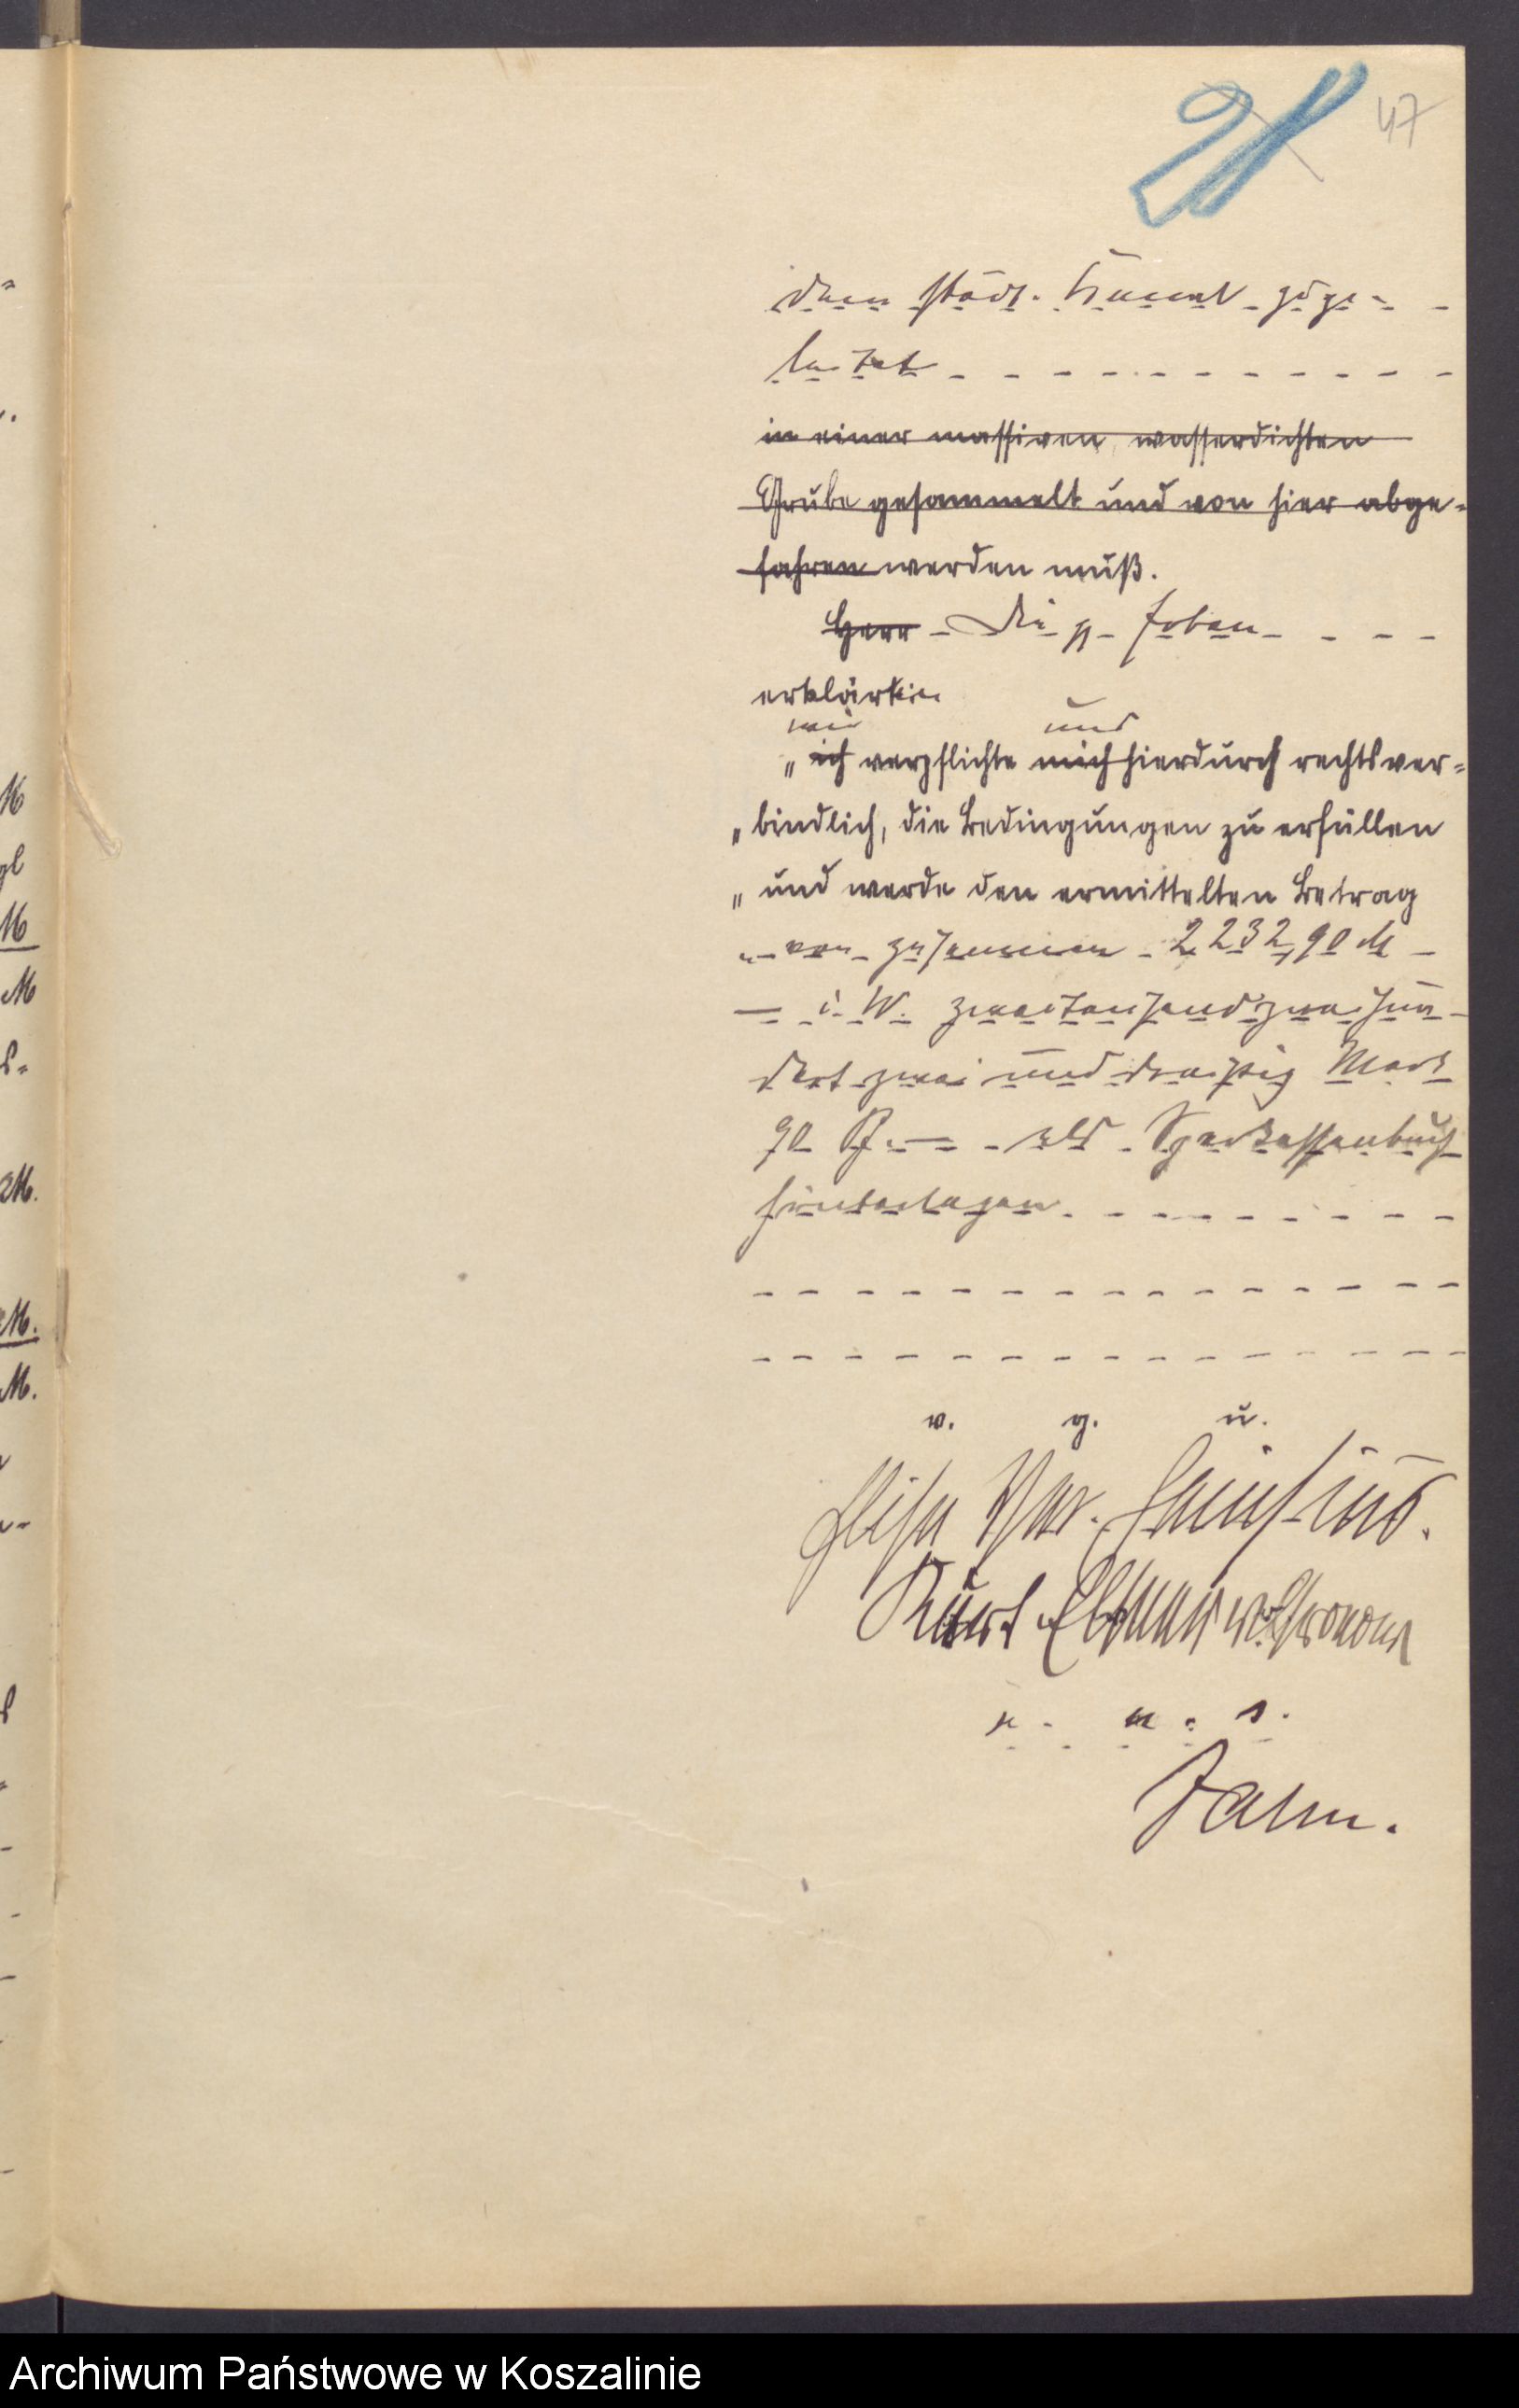 47
dem städt. Kanal zuge-
leitet
in einer massiven, wasserdichten
Grube gesammelt und von hier abge-
fahren werden muß.
Herr Die pp. Erben
erklärten
wir uns
„ich verpflichte mich hierdurch rechtsver-
„bindlich, die Bedingungen zu erfüllen
„und werde den ermittelten Betrag
„von zusammen 2232,90 M
i. W. zweitausendzweihun-
dert zwei und dreißig Mark
90 Pf. als Sparkassenbuch
hinterlegen
v. g. u.
Kurt
w. o.
Jahn.
Archiwum Państwowe w Koszalinie